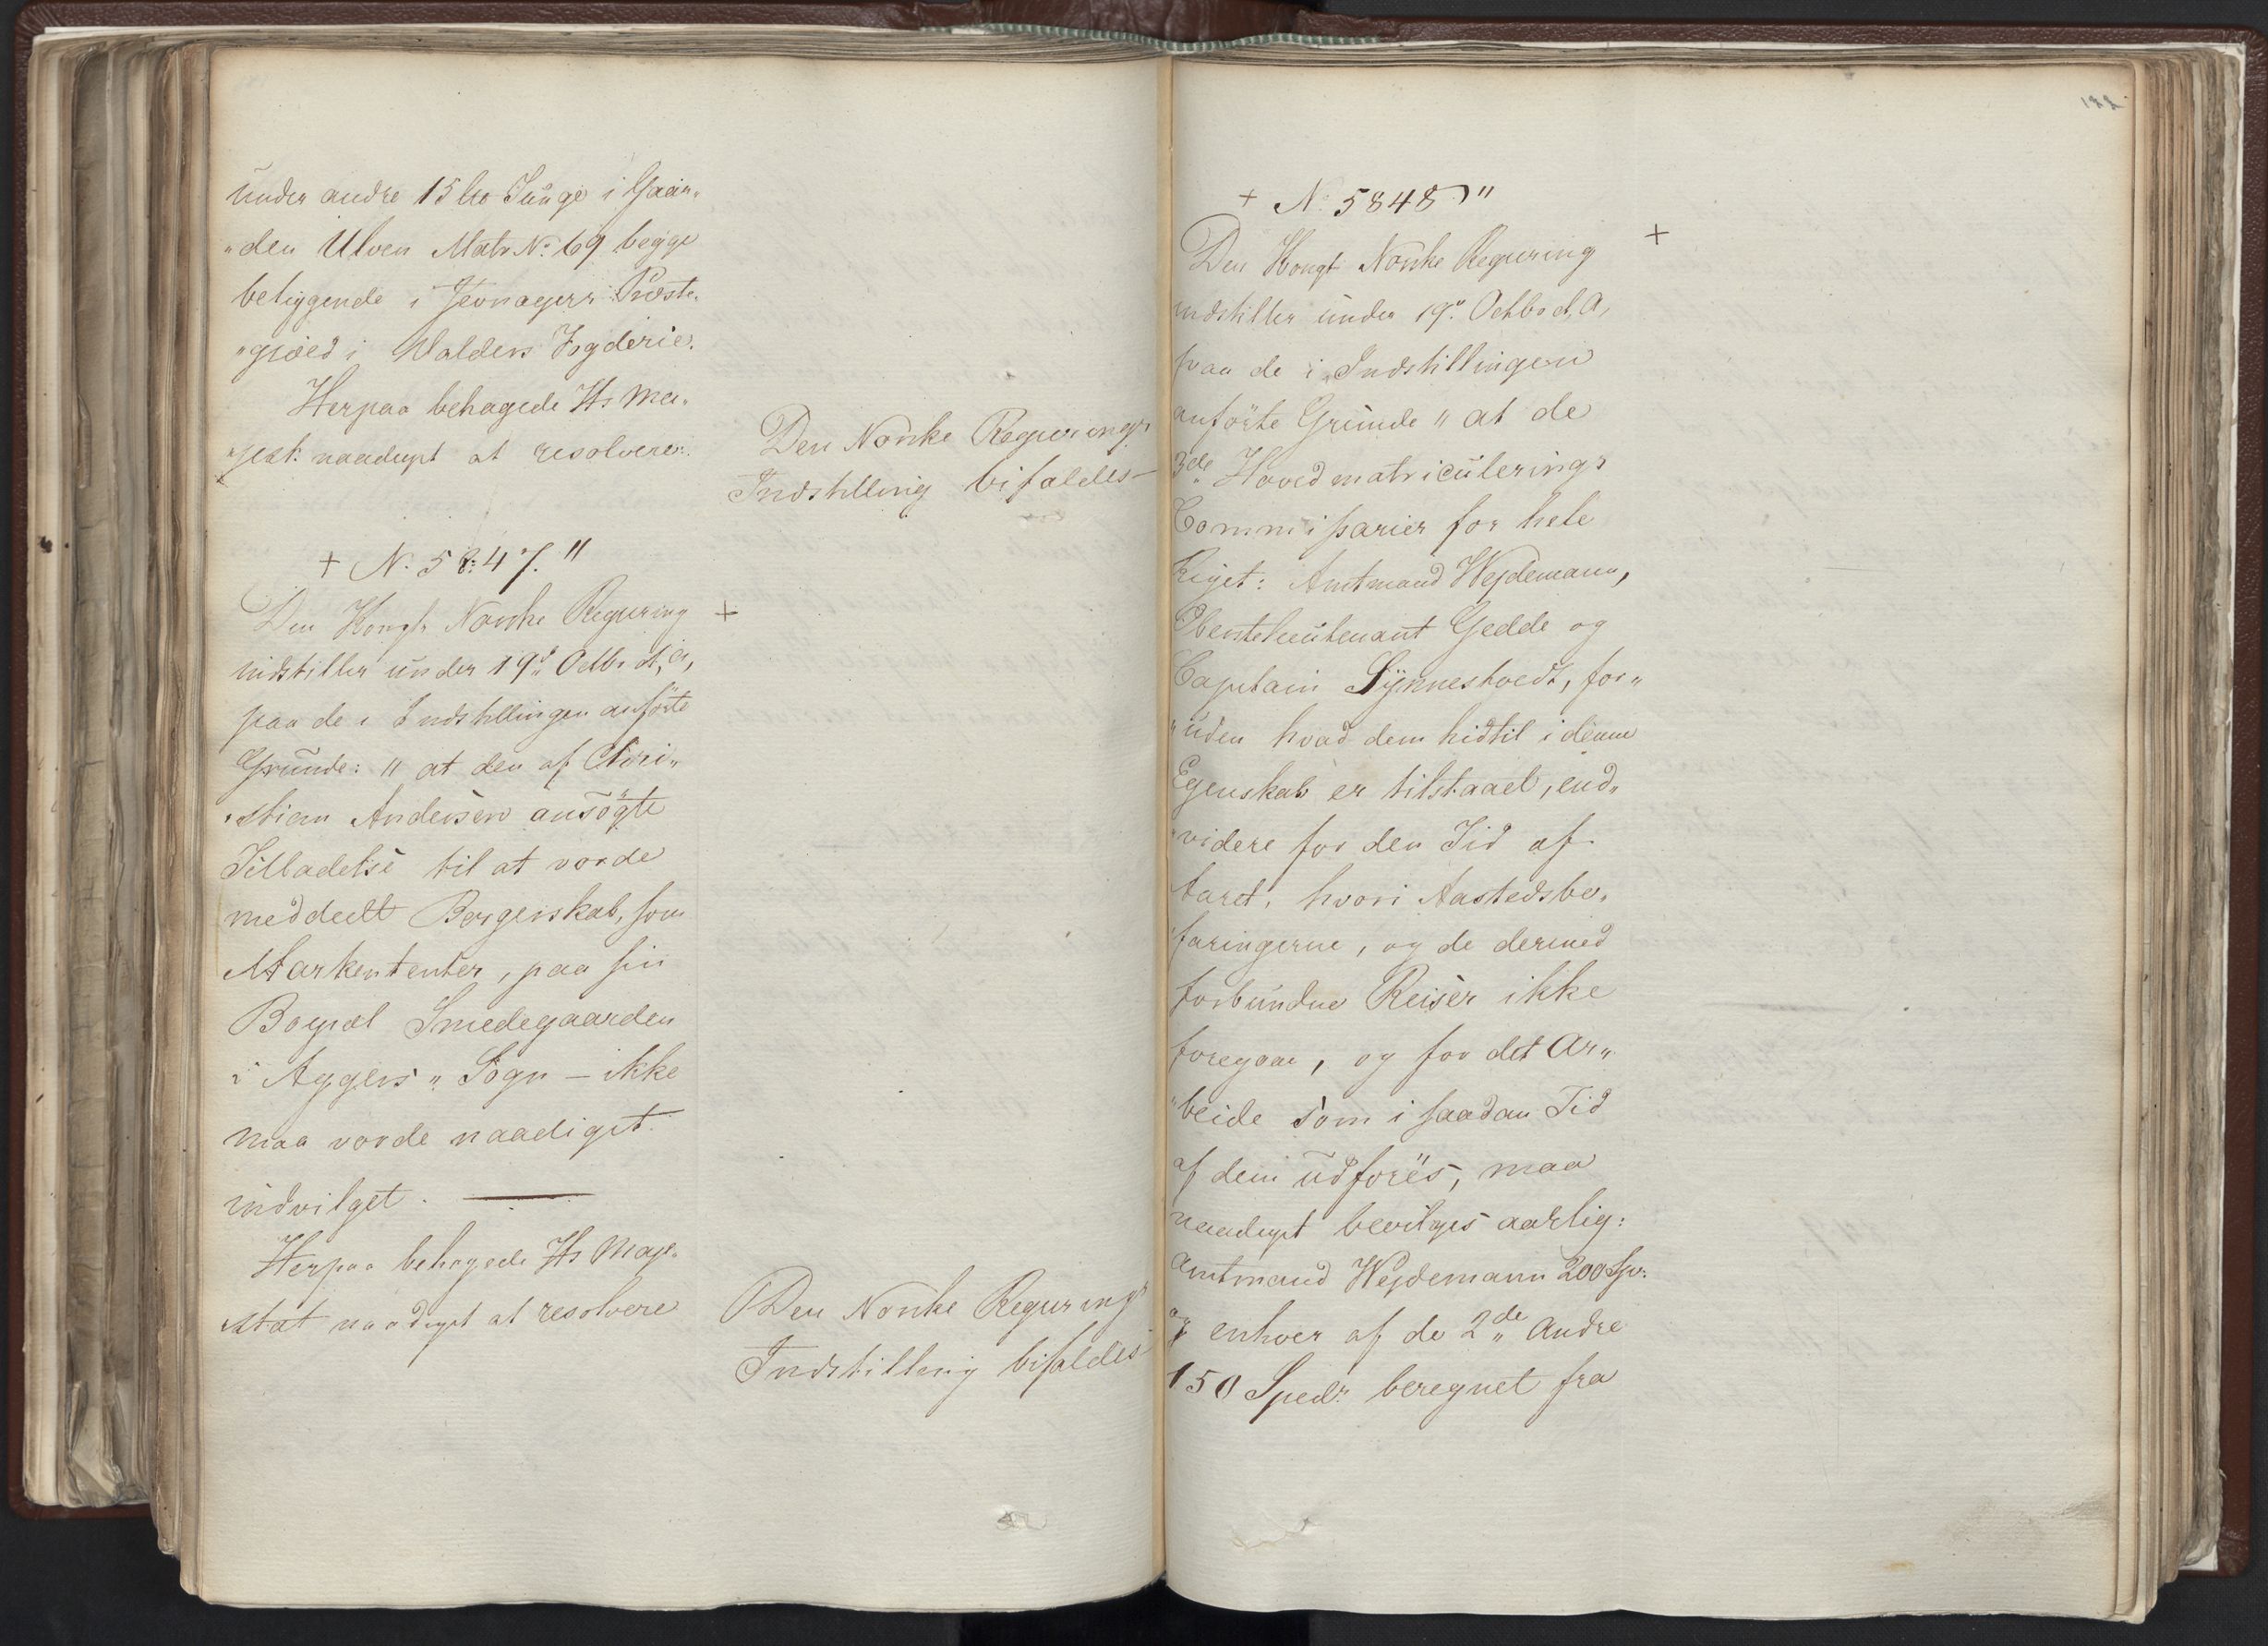 under andre 15 Tunge i Gaar„
„den Ulven Matr N: 69 begge
beliggende i Jevnagers Præste„
„gjæld i Walders Fogderie.
Herpaa behagede Hs Ma„
„jest: naadigst at resolvere:
Den Norske Regjerings
Indstilling bifaldes —
+ N: 5847."
Den Kongl Norske Regjering +
indstiller under 19de Octbr d. A,
paa de i Indstillingen anförte
Grunde: " at den af Chri„
„stian Andersen ansögte
Tilladelse til at vorde
meddeelt Borgerskab, som
Markententer, paa sin
Bopæl Smedegaarden
i Aggers „ Sogn — ikke
maa vorde naadigst
indvilget. —
Herpaa behagede Hs Maje„
stæt naadigst at resolvere
Den Norske Regjerings
Indstilling bifaldes
122
+ N: 5848 "
+
Den Kongl Norske Regjering
indstiller under 19de Octbr d. A,
paa de i Indstillingen
anförte Grunde " at de
3de Hovedmatriculerings
Commissarier for hele
Riget: Amtmand Wejdemann,
Oberstelieutenant Gedde og
Capitain Synnestvedt, for„
„uden hvad dem hidtil i denne
Egenskab er tilstaaet, end„
„videre for den Tid af
Aaret, hvori Aastedsbe„
faringerne, og de dermed
forbundne Reiser ikke
foregaae, og for det Ar„
„beide som i saadan Tid
af dem udföres, maa
naadigst bevilges aarlig:
Amtmand Wejdemann 200 Sp:
og enhver af de 2de Andre
150 Spedr beregnet fra